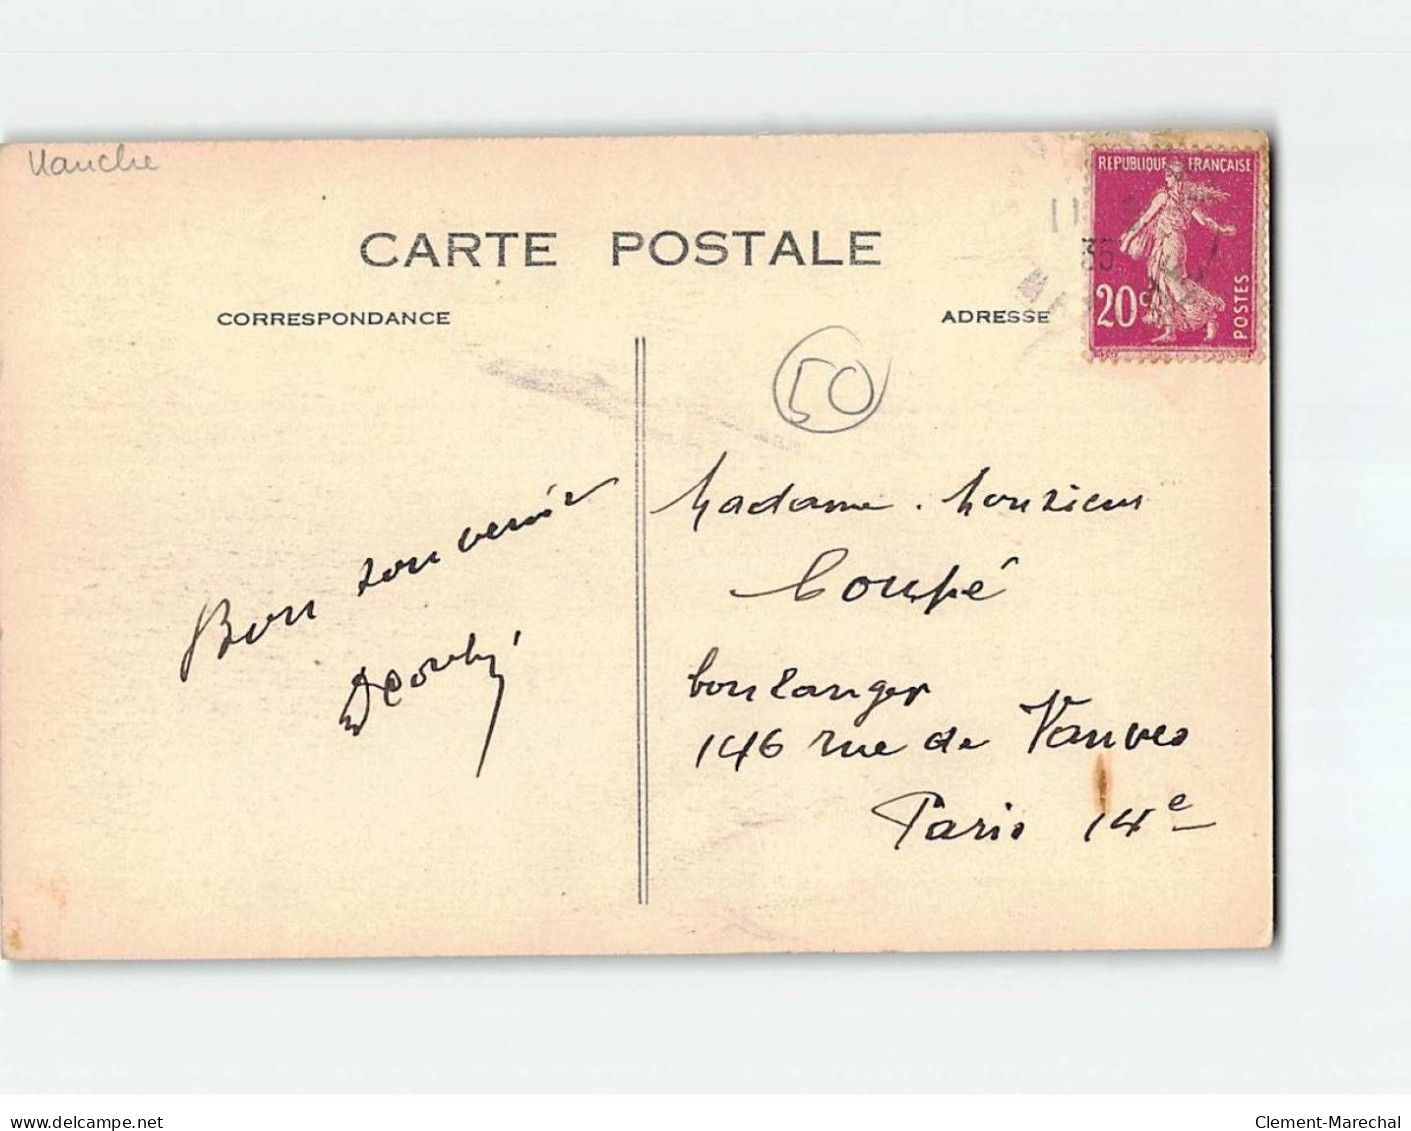 Manche
CARTE POSTALE
CORRESPONDANCE
ADRESSE
REPUBLIQUE FRANÇAISE
20c
POSTES
35
50
Bon souvenir
Madame. Monsieur
Coupé
boulanger
146 rue de Vanves
Paris 14e
www.delcampe.net
Clement-Marechal